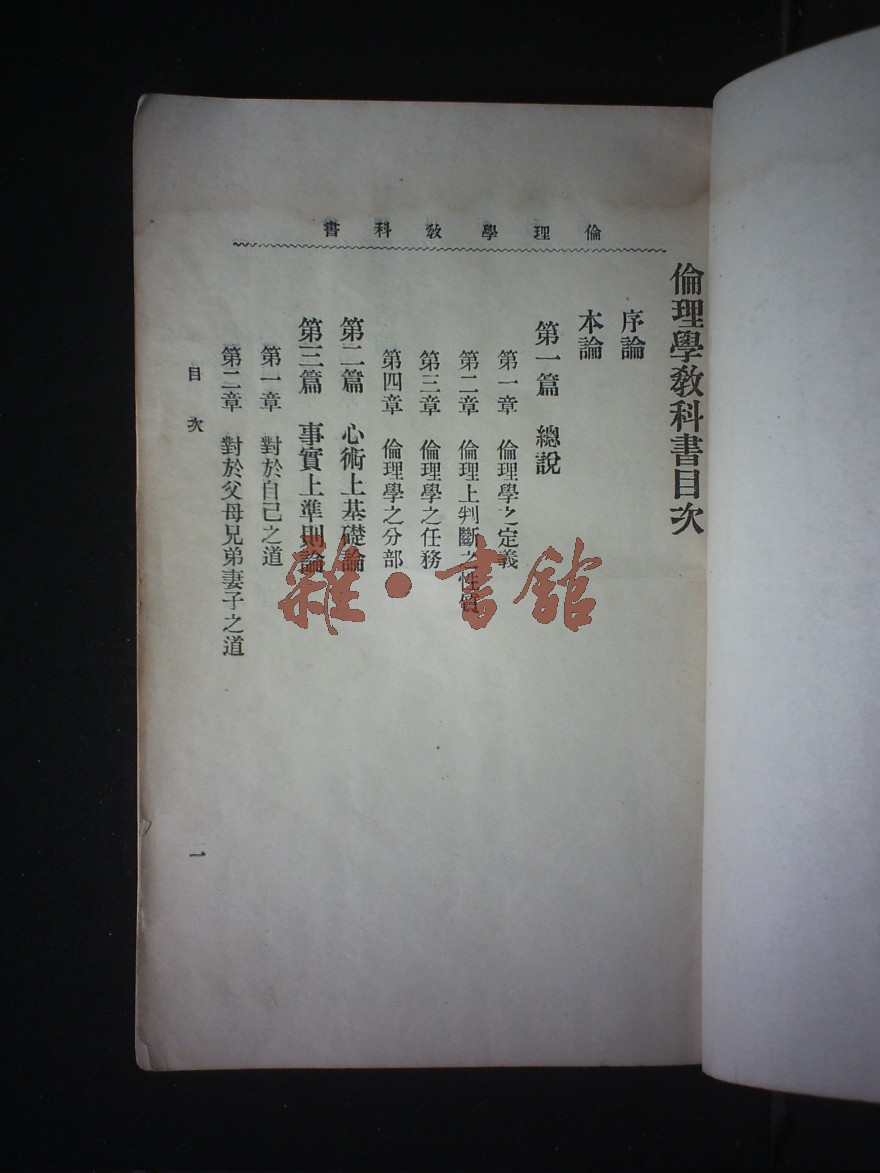 倫理學教科書
倫理學教科書目次
序論
本論
第一篇 總說
第一章 倫理學之定義
第二章 倫理上判斷之性質
第三章 倫理學之任務
第四章 倫理學之分部
第二篇 心術上基礎論
第三篇 事實上準則論
第一章 對於自己之道
第二章 對於父母兄弟妻子之道
目次
一
雜·書館